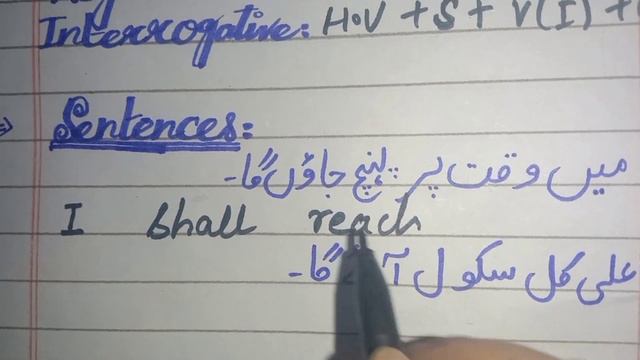 Interrogative: H.V + S + V(I) +
Sentences:
میں وقت پر پہنچ جاؤں گا۔
I shall reach
علی کل سکول آئے گا۔